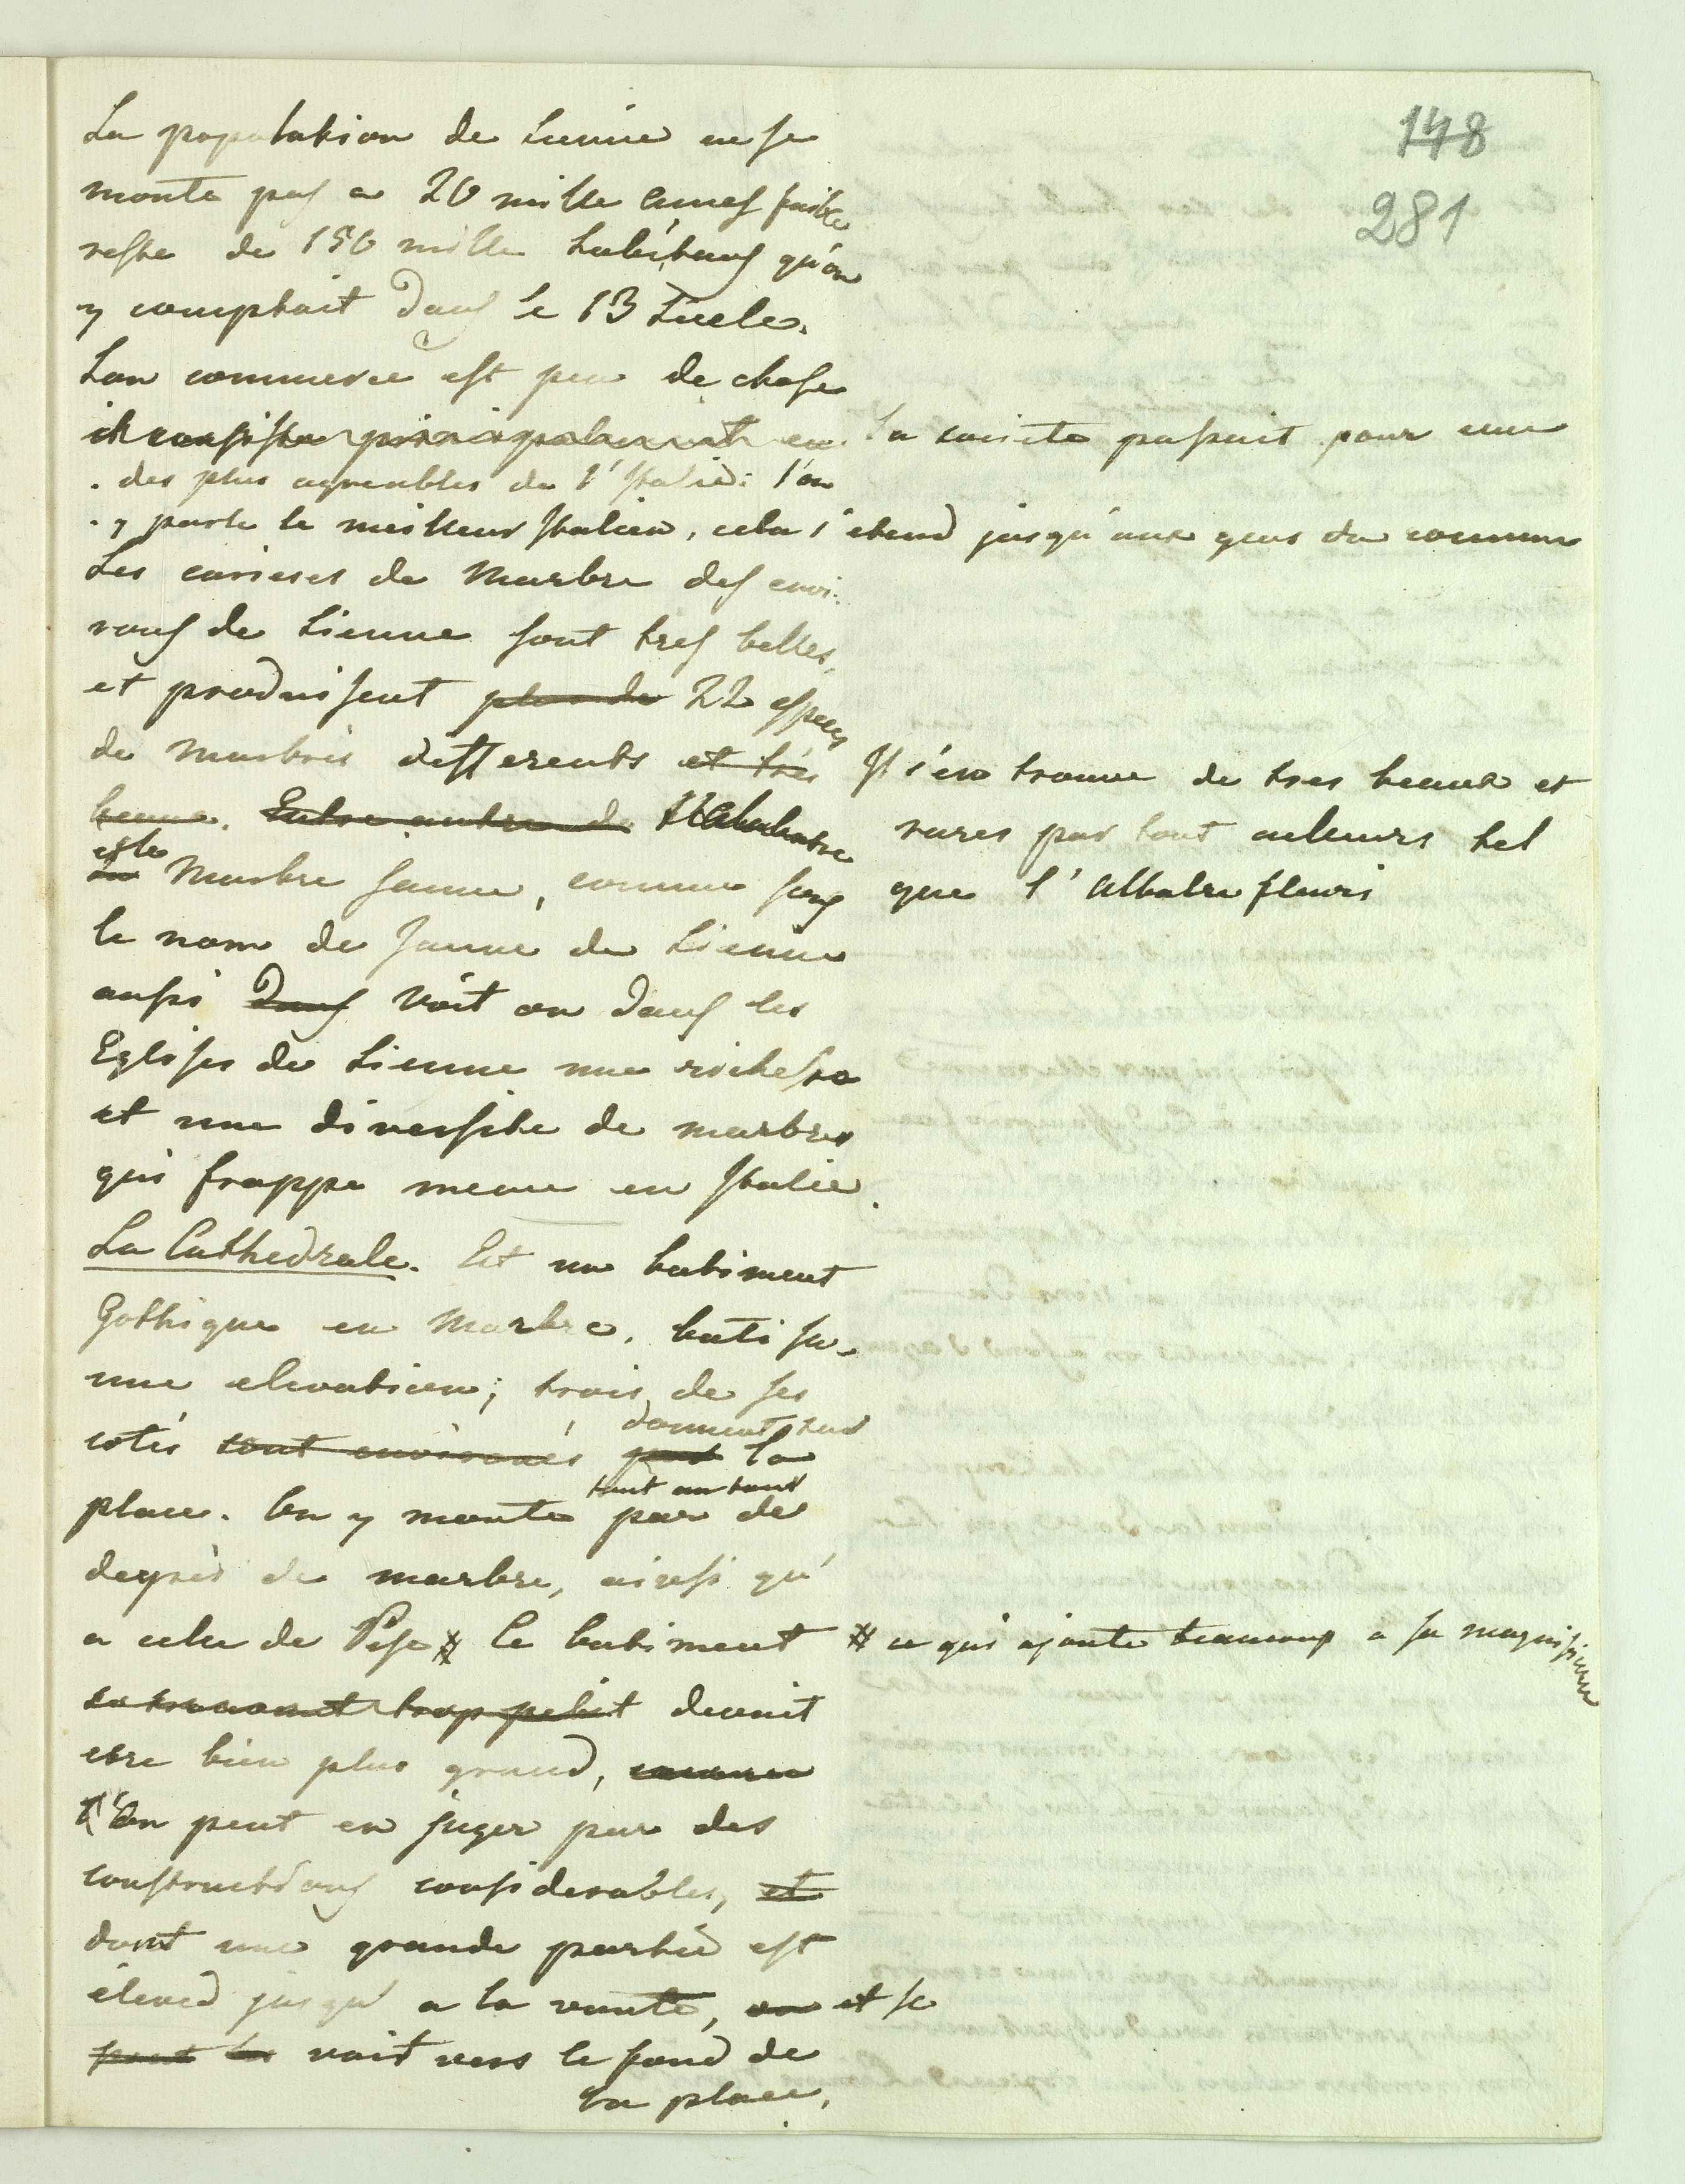 148
281
La population de Sienne ne se
monte pas a 20 mille ames faible
reste de 150 mille habitans qu'on
y comptait dans le 13 Siecle.
Son commerce est peu de chose
il consiste principalement en. La societe passait pour une
. des plus agreables de l'Italie: l'on
. y parle le meilleur Italien, cela s'etend jusqu'aux gens du commun
Les carieres de Marbre des envi:
rons de Sienne sont tres belles,
et produisent plus de 22 especes
de Marbres differents et très
beaux. Entre autre de l'Alabatre
et le
du Marbre Jaune, connu sous
Il s'en trouve de tres beaux et
rares par tout ailleurs tel
que l'Albatre fleuri
le nom de Jaune de Sienne
aussi dans Voit on dans les
Eglises de Sienne une richesse
et une diversite de marbres
qui frappe meme en Italie.
La Cathedrale. Est un batiment
Gothique en Marbre. bati sur
une elevation; trois de ses
donnent sur
cotés sont environnés par la
tout au tour
place. On y monte par des
degrès de marbre, ainsi qu'
a celle de Pise # le batiment # ce qui ajoute beaucoup a sa magnificence
se trouvant trop petit devait
etre bien plus grand, comme
l'On peut en juger par des
constructions considerables, et
dont une grande partie est
élevée jusqu'a la voute, on et se
peut les voit vers le fond de
la place.